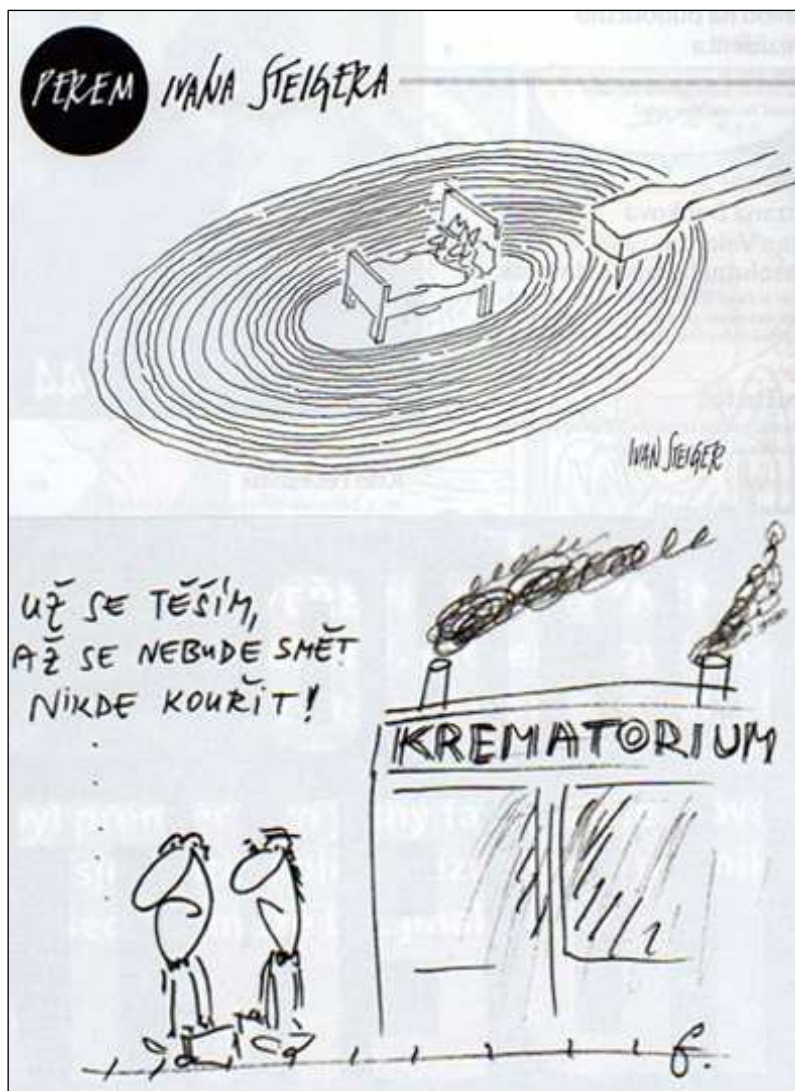 PEREM IVANA STEIGERA
IVAN STEIGER
UŽ SE TĚŠÍM,
AŽ SE NEBUDE SMĚT
NIKDE KOUŘIT!
KREMATORIUM